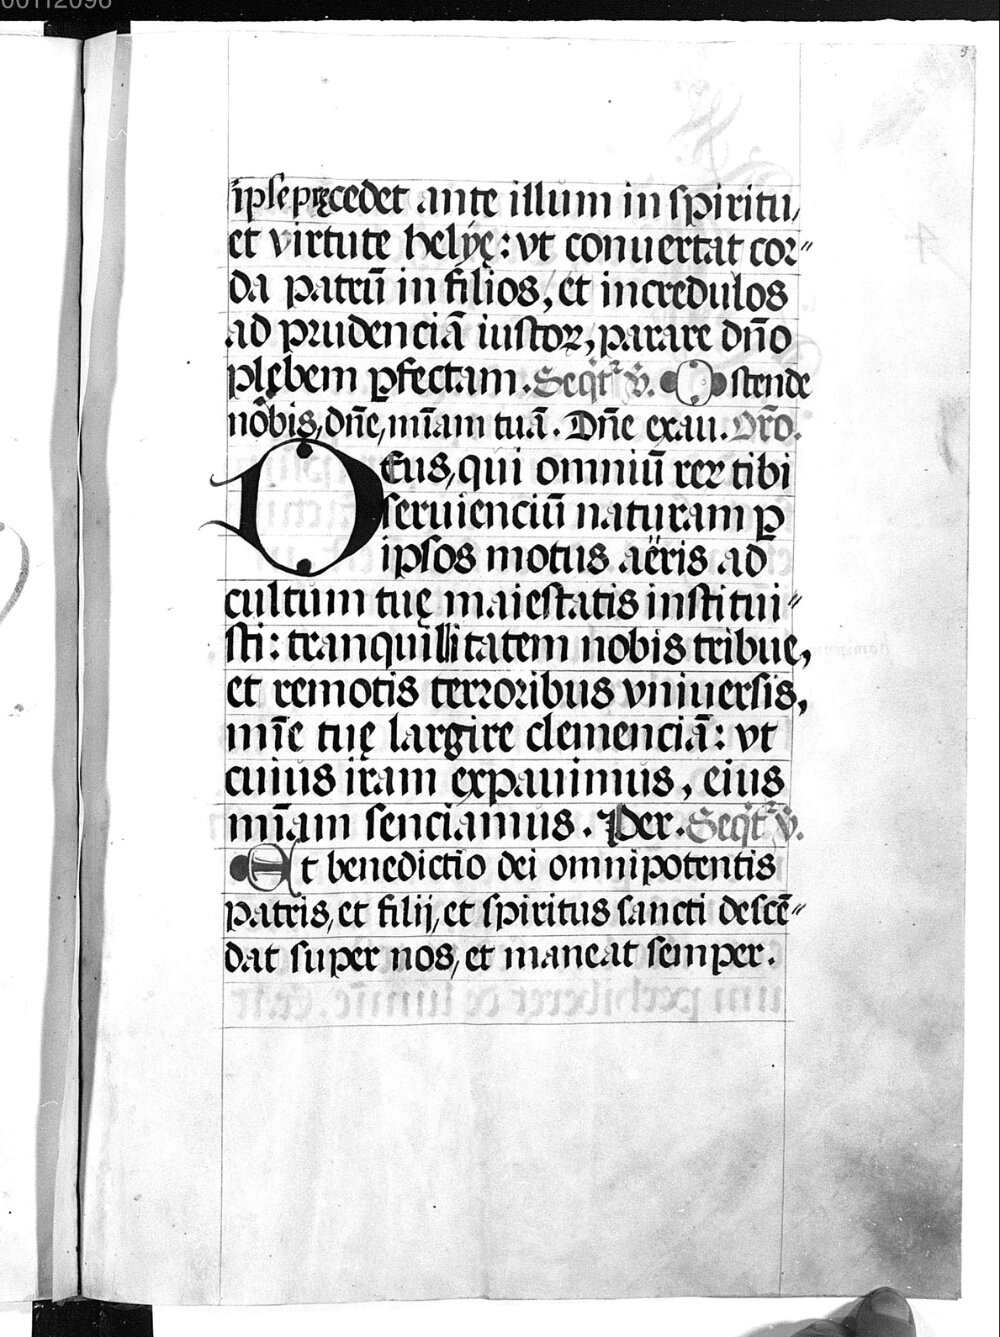 00112096
5
ipse pręcedet ante illum in spiritu,
et virtute helyę: vt conuertat cor⸗
da patrū in filios, et incredulos
ad prudenciā iustoꝝ, parare dño
plębem ꝑfectam. Seqt̃ v̄. Ostende
nobis, dñe, mīam tuā. Dñe exau. Orō.
DEus, qui omniū rex tibi
seruienciū naturam ꝑ
ipsos motus aëris ad
cultum tuę maiestatis institui⸗
sti: tranquillitatem nobis tribue,
et remotis terroribus vniuersis,
mīe tuę largire clemenciā: vt
cuius iram expauimus, eius
mīam senciamus. Per. Seqt̃ v̄.
Et benedictio dei omnipotentis
patris, et filij, et spiritus sancti descē⸗
dat super nos, et maneat semper.